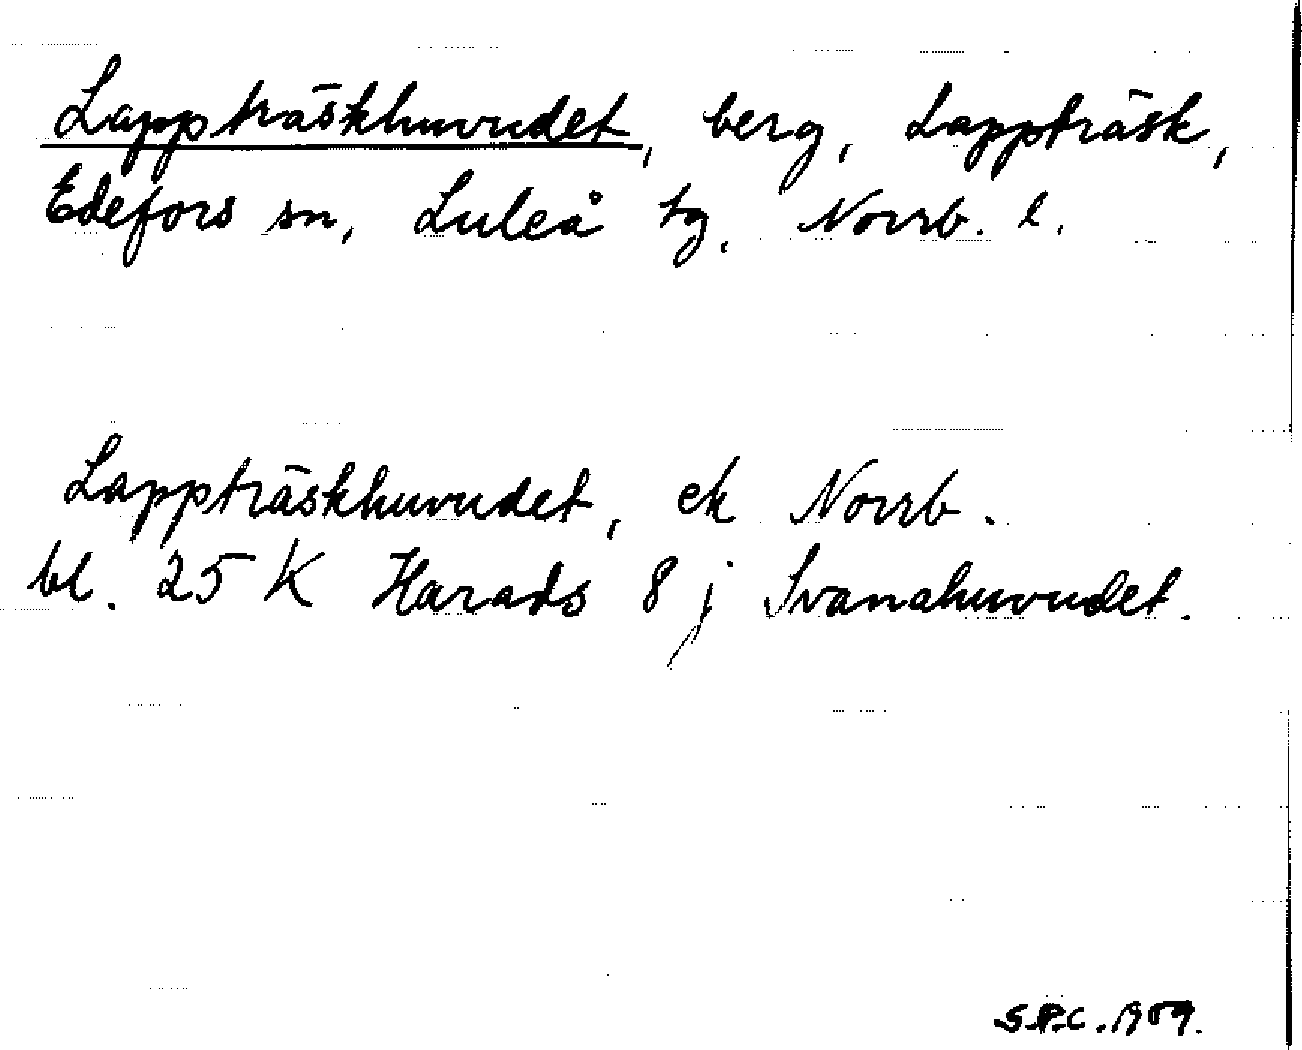 Lappträskhuvudet, berg, Lappträsk,
Edefors sn, Luleå tg, Norrb. l.
Lappträskhuvudet, ek Norrb.
bl. 25 K Harads 8 j Svanahuvudet.
S.P.C. 1959.